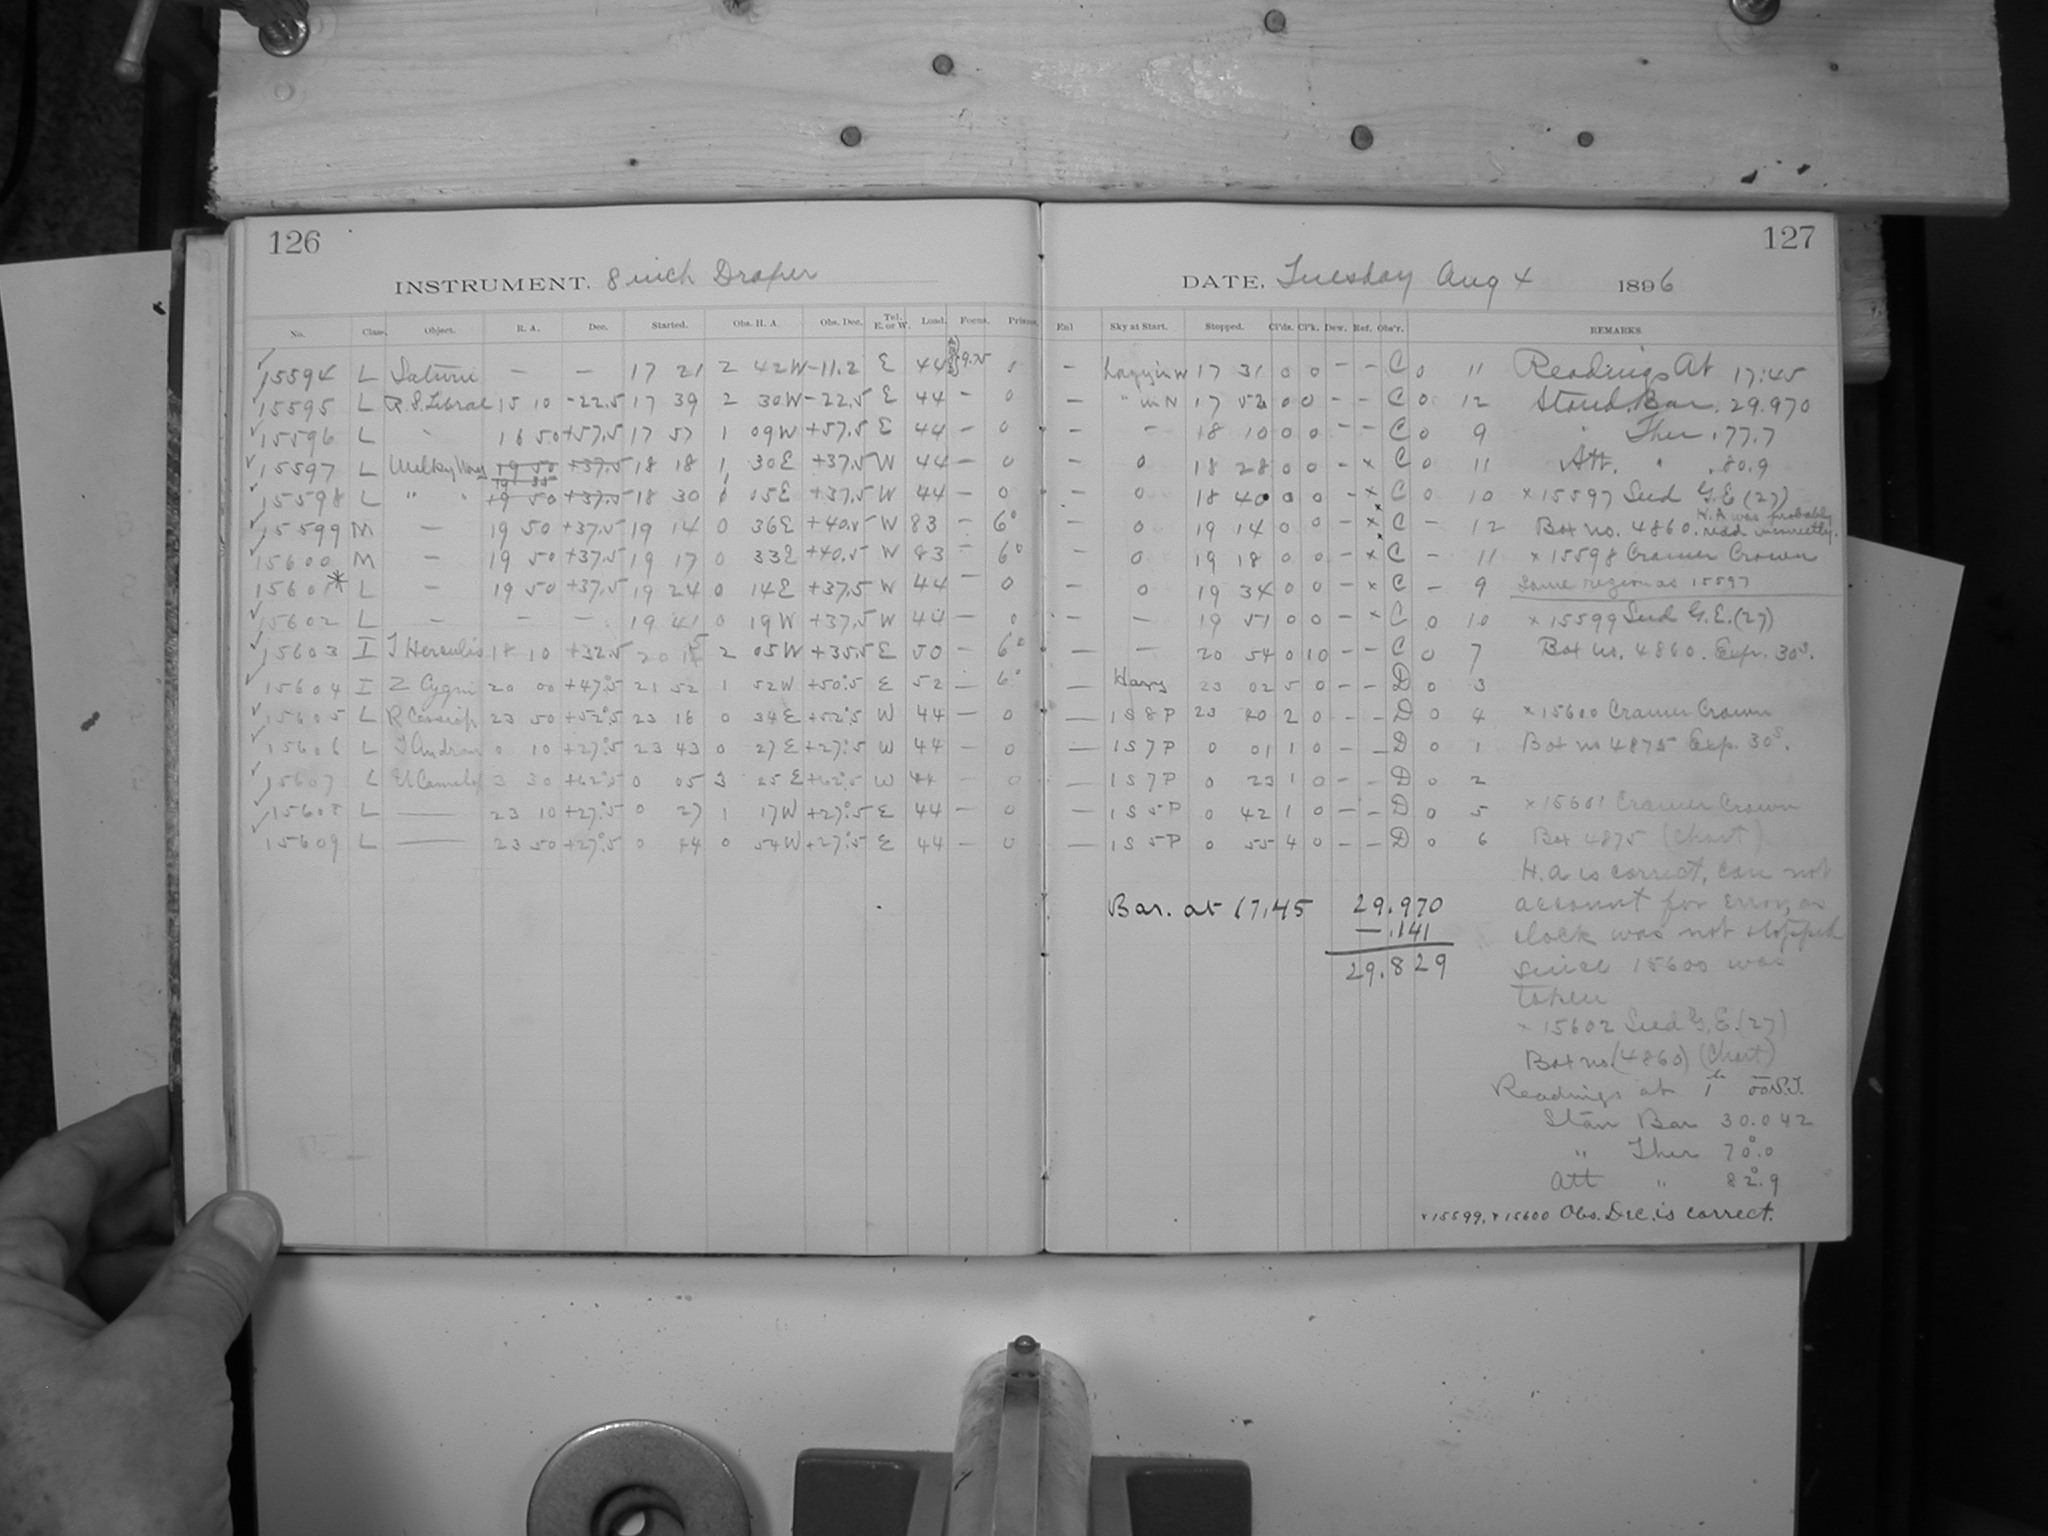 126
INSTRUMENT. 8 inch Draper
No. Class. Object. R. A. Dec. Started. Obs. H. A. Obs. Dec. Tel. E. or W. Load. Focus. Prisms.
15594 L Saturn — — 17 21 2 42W -11.2 E 44 9.75 0
15595 L R.S. Librae 15 10 -22.5 17 39 2 30W -22.5 E 44 — 0
15596 L 16 50 +57.5 17 57 1 09W +57.5 E 44 — 0
15597 L Milky Way 19 50 +37.5 18 18 1 30E +37.5 W 44 — 0
19 35
15598 L " " 19 50 +37.5 18 30 1 05E +37.5 W 44 — 0
15599 M — 19 50 +37.5 19 14 0 36E +40.5 W 83 — 6°
15600 M — 19 50 +37.5 19 17 0 33E +40.5 W 83 — 6°
15601* L — 19 50 +37.5 19 24 0 14E +37.5 W 44 — 0
15602 L — — — 19 41 0 19W +37.5 W 44 — 0
15603 I T Herculis 18 10 +32.5 20 2 05W +35.5 E 50 — 6°
15604 I Z Cygni 20 00 +47°.5 21 52 1 52W +50°.5 E 52 — 6°
15605 L R Cassiop 23 50 +52°.5 23 16 0 34E +52°.5 W 44 — 0
15606 L T Androm 0 10 +27°.5 23 43 0 27E +27°.5 W 44 — 0
15607 L U Camelop 3 30 +62°.5 0 05 3 25E +62°.5 W 44 — 0
15608 L — 23 10 +27°.5 0 27 1 17W +27°.5 E 44 — 0
15609 L — 23 50 +27°.5 0 44 0 54W +27°.5 E 44 — 0
127
DATE, Tuesday Aug 4 1896
Enl Sky at Start. Stopped. Cl'ds. Cl'k. Dew. Ref. Obs'r. REMARKS
— 17 31 0 0 — — C 0 11
— " in N 17 52 0 0 — — C 0 12
— — 18 10 0 0 — — C 0 9
— 0 18 28 0 0 — x C 0 11
— 0 18 40 0 0 — x C 0 10
— 0 19 14 0 0 — x C — 12
— 0 19 18 0 0 — x C — 11
— 0 19 34 0 0 — x C — 9
— — 19 51 0 0 — x C 0 10
— — 20 54 0 10 — — C 0 7
— Hazy 23 02 5 0 — — D 0 3
— 1S8P 23 40 2 0 — — D 0 4
— 1S7P 0 01 1 0 — — D 0 1
— 1S7P 0 23 1 0 — — D 0 2
— 1S5P 0 42 1 0 — — D 0 5
— 1S5P 0 55 4 0 — — D 0 6
Bar. at 17.45 29.970
— .141
29.829
Readings At 17:45
Stand. Bar. 29.970
" Ther. 77.7
Att. " 80.9
x 15597 Seed G.E (27)
Box no. 4860. H.A was probably read incorrectly.
x 15598 Cramer Crown
Same region as 15597
x 15599 Seed G.E. (27)
Box no. 4860. Exp. 30s.
x 15600 Cramer Crown
Box no 4875 Exp. 30s.
x 15601 Cramer Crown
Box 4875 (Chart)
H.A is correct, can not
account for error, as
clock was not stopped
since 15600 was
taken
x 15602 Seed G.E. (27)
Box no. (4860) (Chart)
Readings at 1h 00 S.T.
Stan Bar 30.042
" Ther 70°.0
Att " 82°.9
x 15599, x 15600 Obs. Dec. is correct.